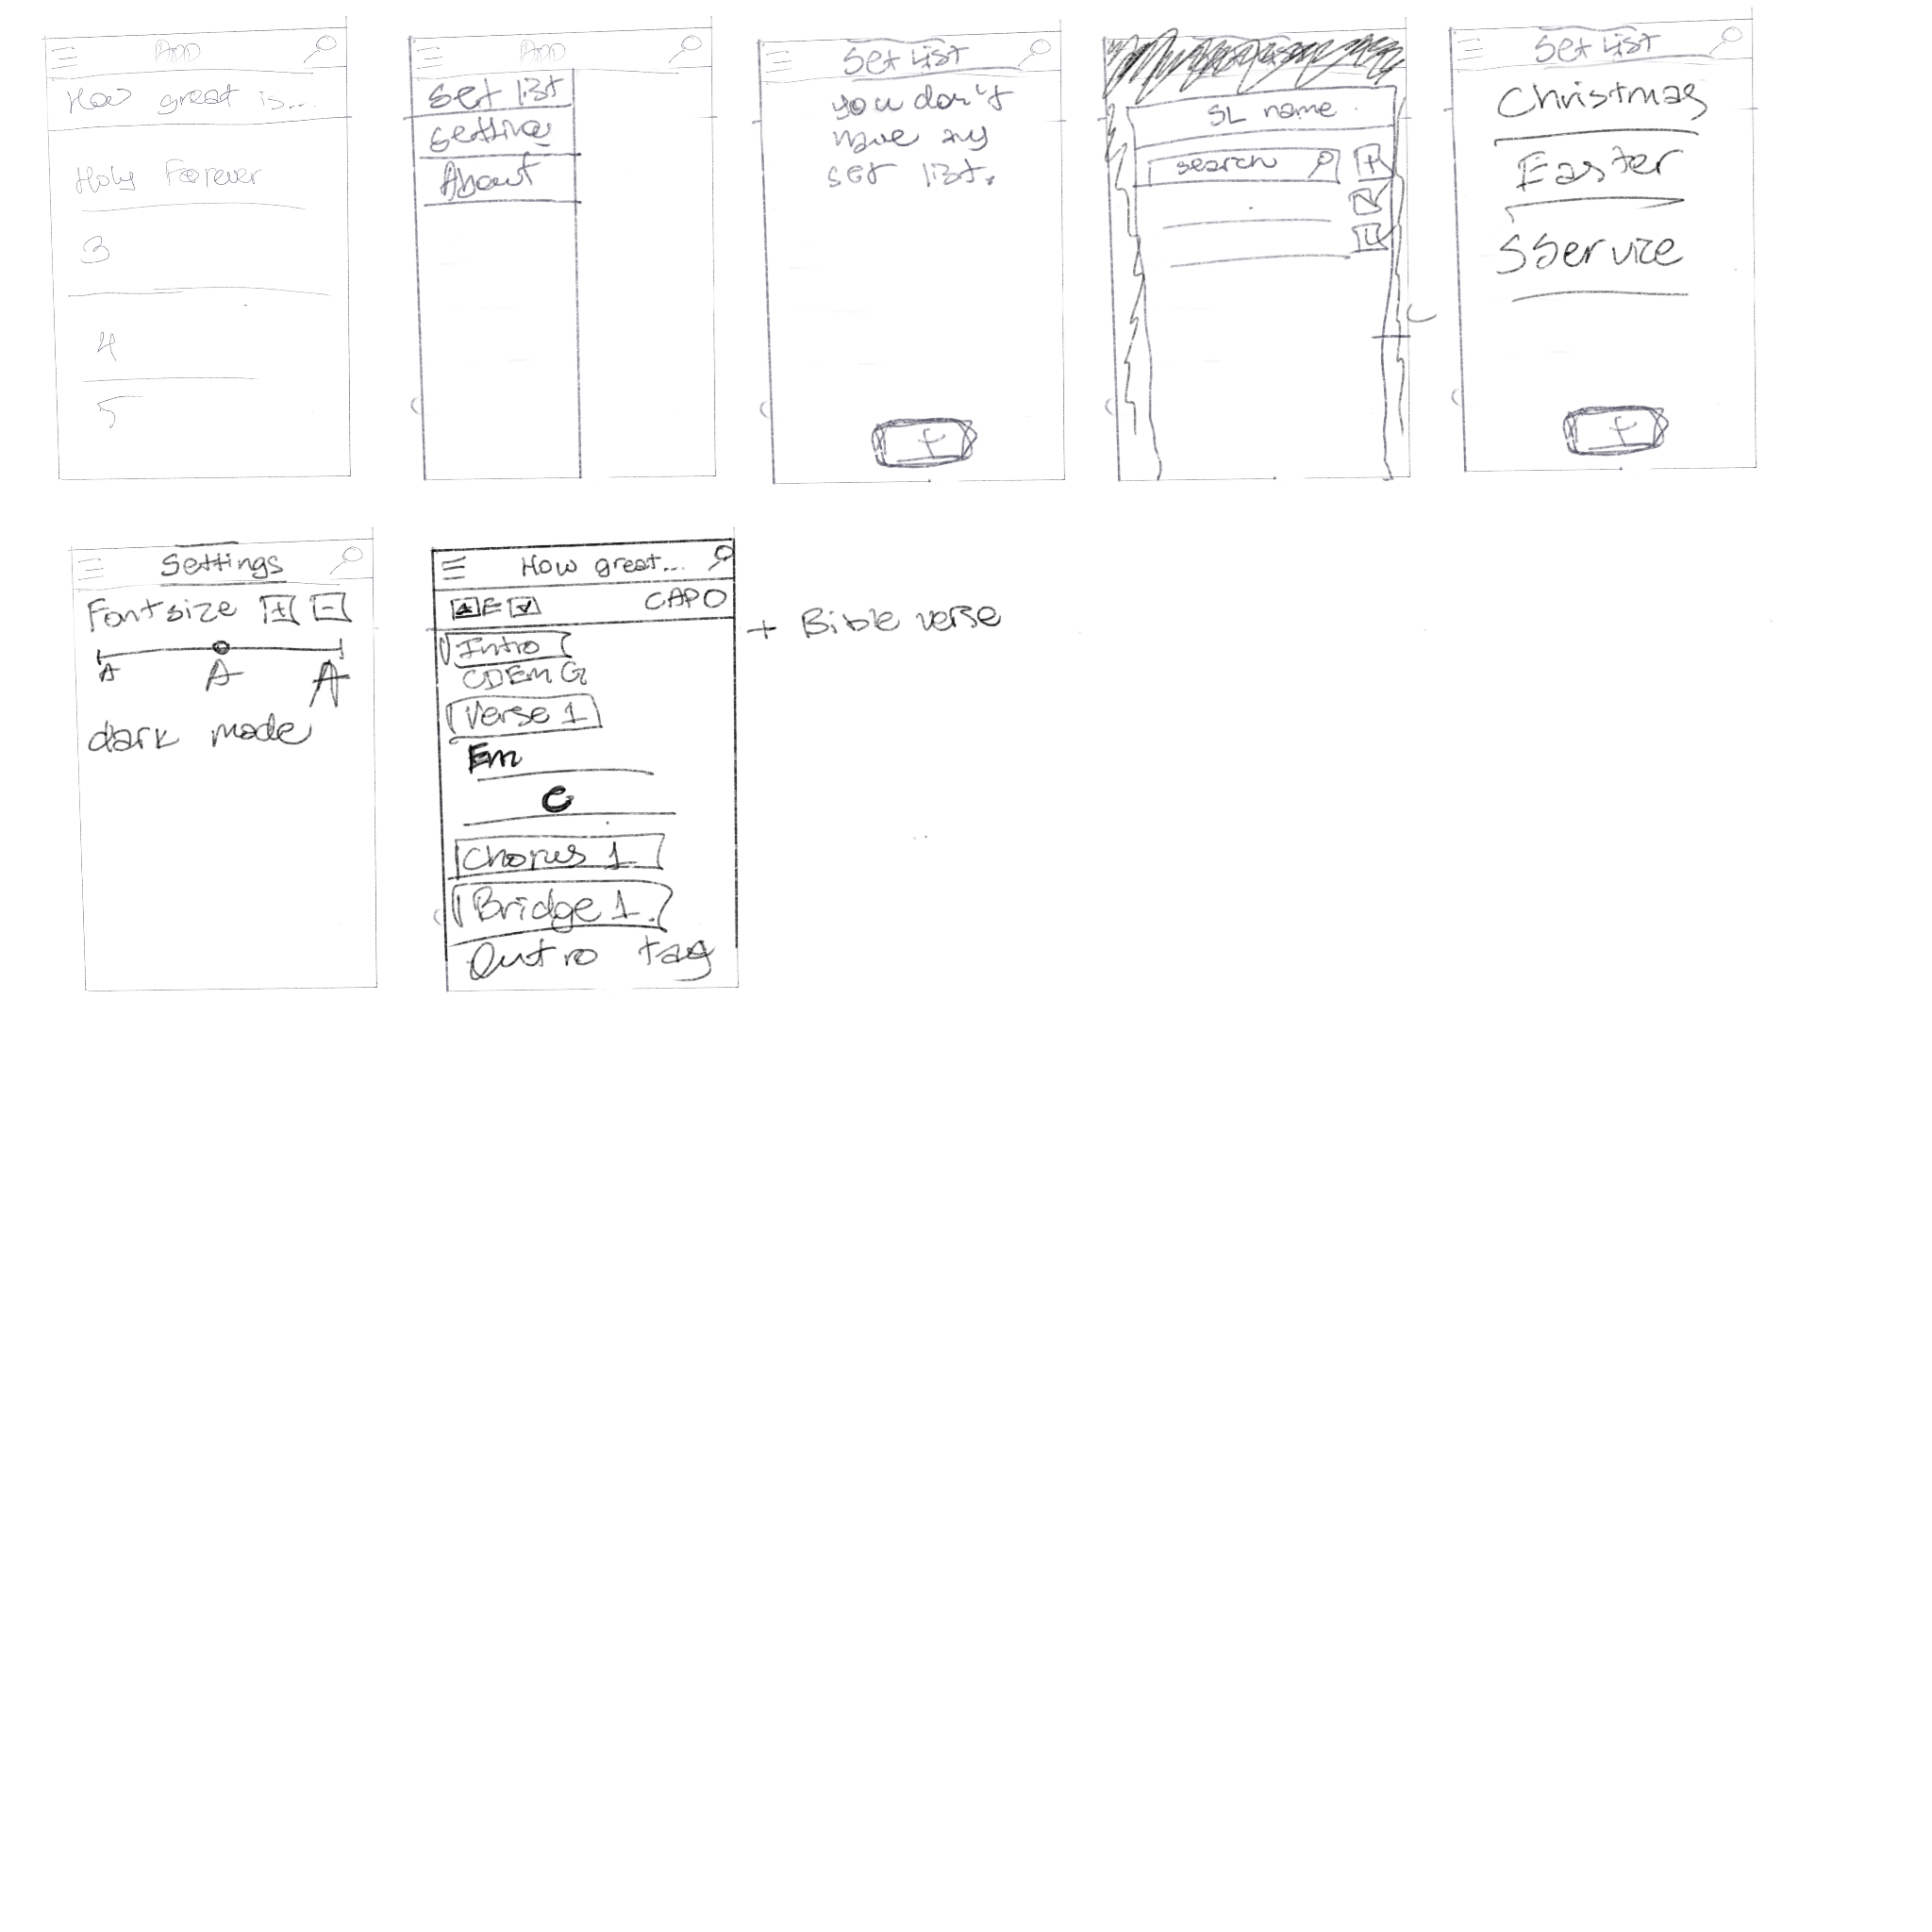 App
How great is...
Holy Forever
3
4
5
App
set list
setting
About
Set List
you don't
have any
set list.
SL name
search
+
Set List
Christmas
Easter
SService
+
Settings
Font size + -
A A A
dark mode
How great...
E CAPO
+ Bible verse
Intro
CDEm G
Verse 1
Em
C
Chorus 1
Bridge 1
Outro tag